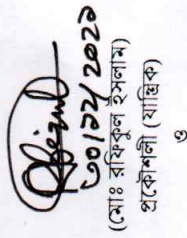 ৩০/১২/২০২১
(মোঃ রফিকুল ইসলাম)
প্রকৌশলী (যান্ত্রিক)
ও